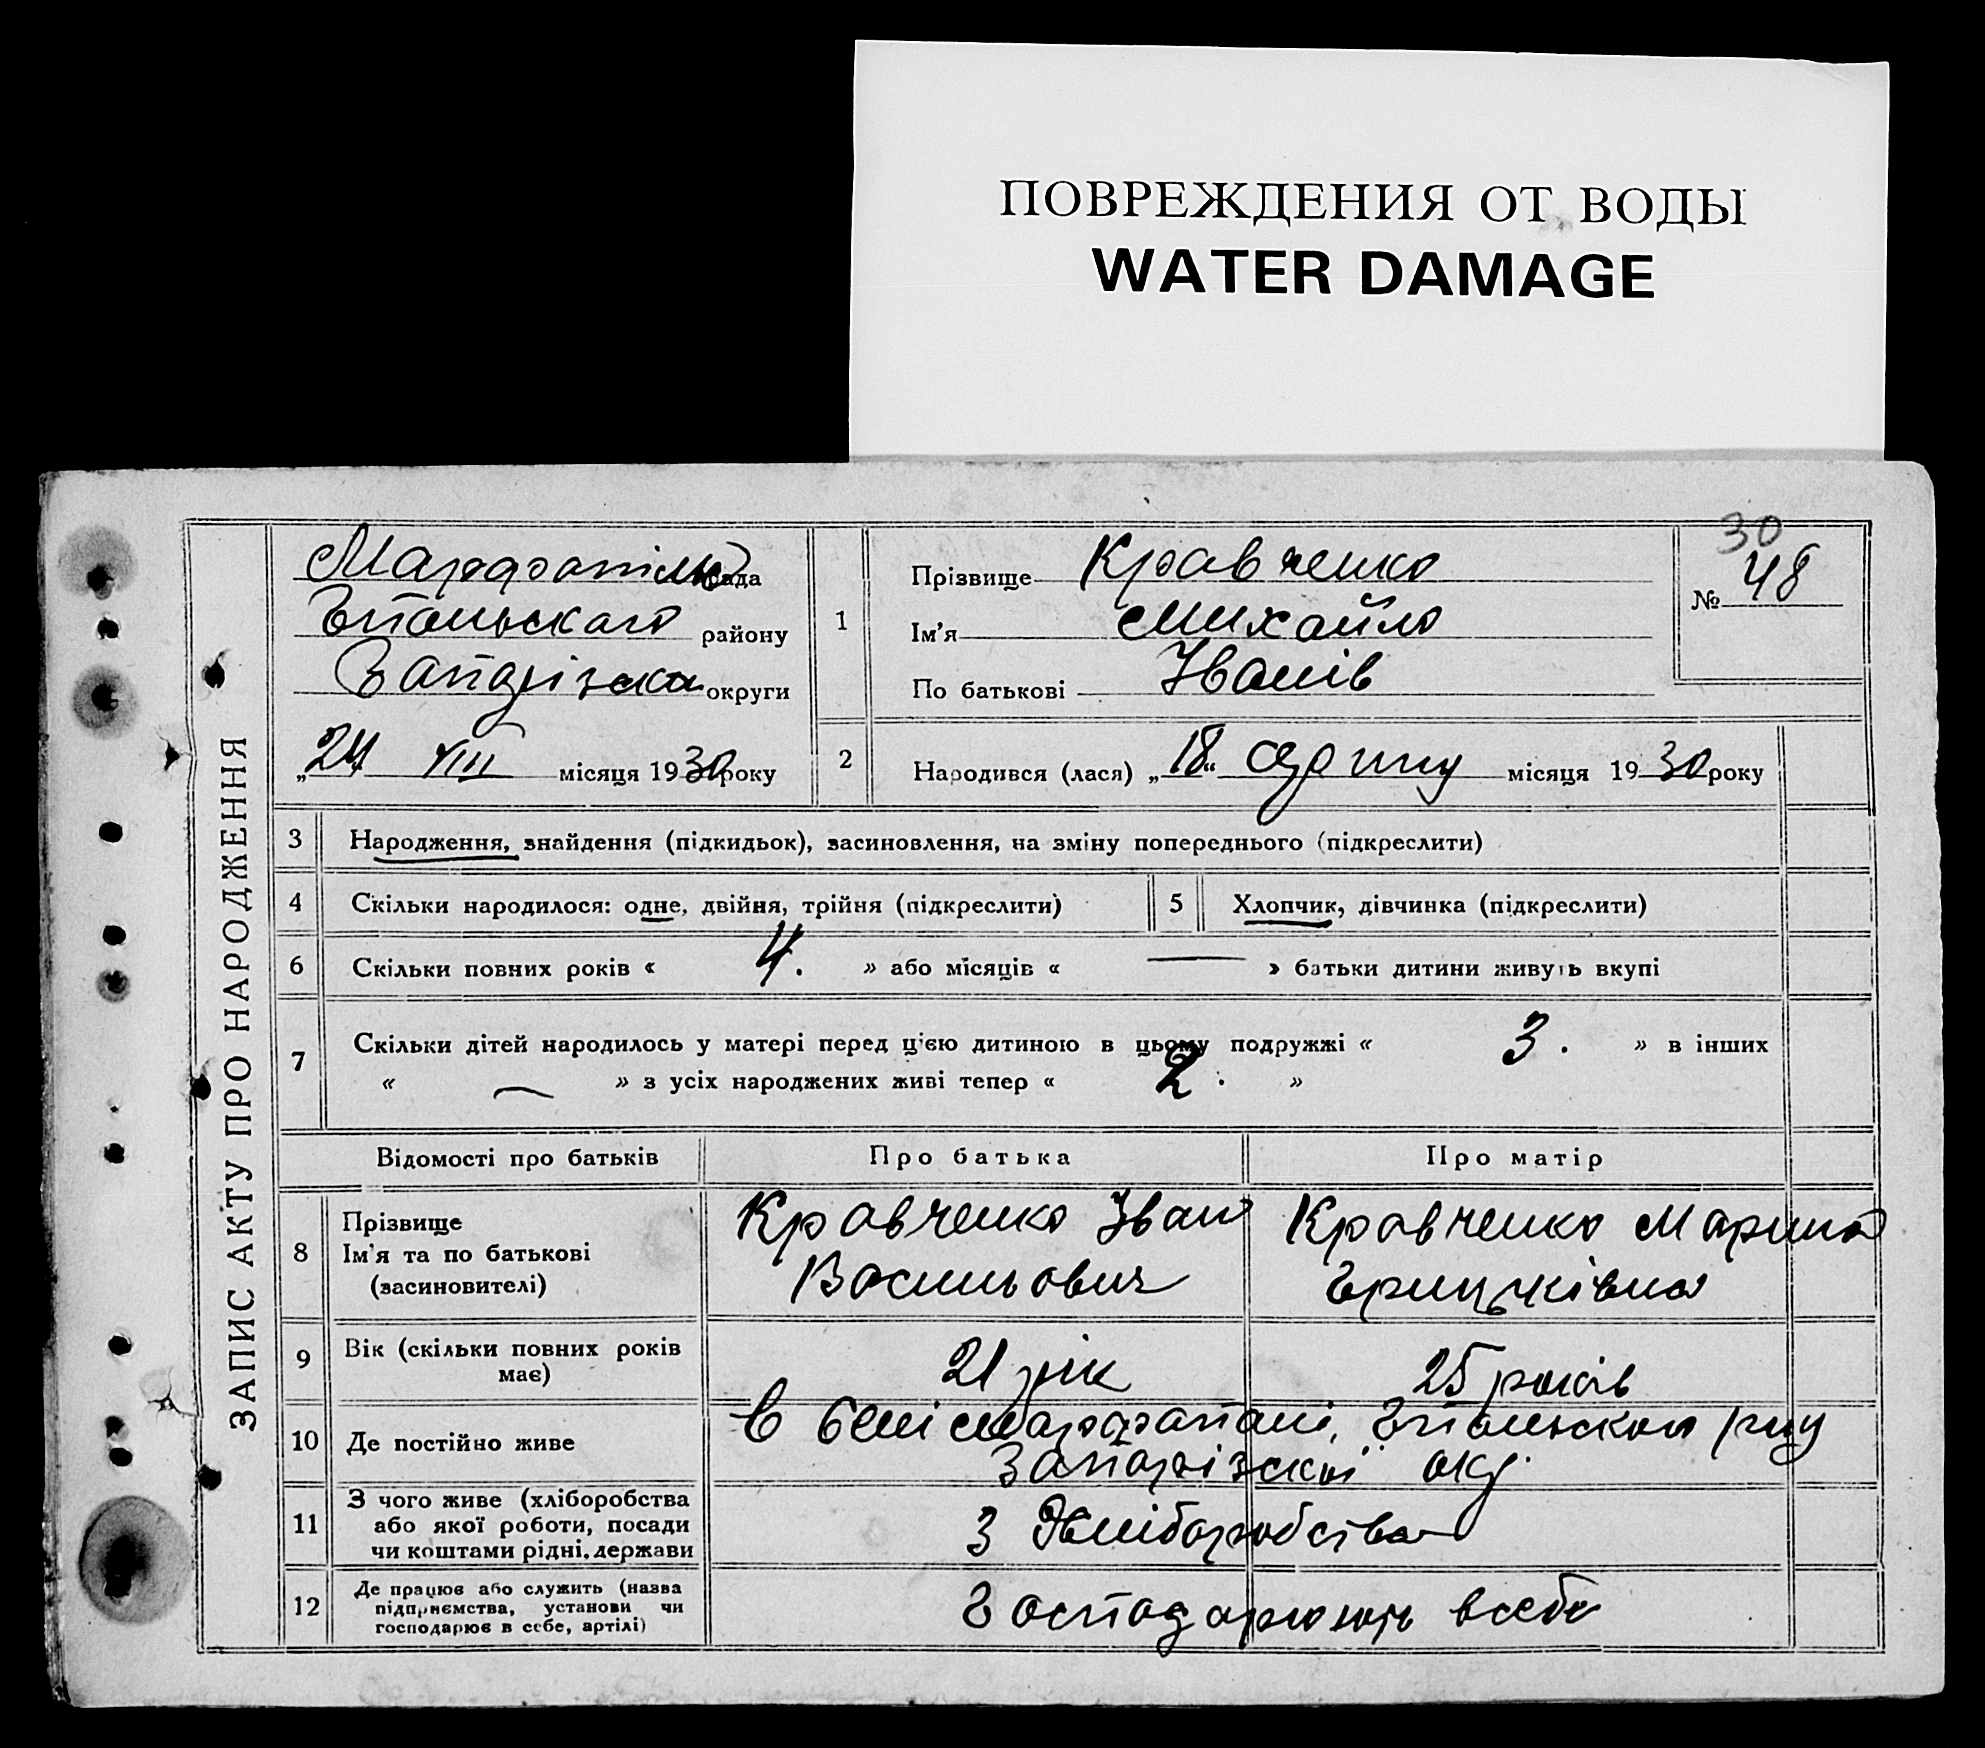 ПОВРЕЖДЕНИЯ ОТ ВОДЫ
WATER DAMAGE
ЗАПИС АКТУ ПРО НАРОДЖЕННЯ
рада
району
округи
„24 VIII місяця 1930 року
1
Прізвище Кравченко
Ім'я Михайло
По батькові Іванів
30
№ 48
2
Народився (лася) „18“ серпня місяця 1930 року
3 Народження, знайдення (підкидьок), засиновлення, на зміну попереднього (підкреслити)
4 Скільки народилося: одне, двійня, трійня (підкреслити) 5 Хлопчик, дівчинка (підкреслити)
6 Скільки повних років « 4. » або місяців « — » батьки дитини живуть вкупі
7 Скільки дітей народилось у матері перед ц'єю дитиною в цьому подружжі « 3. » в інших
« — » з усіх народжених живі тепер « 2. »
Відомості про батьків Про батька Про матір
8 Прізвище
Ім'я та по батькові
(засиновителі)
Кравченко Іван
Васильович
Кравченко Марина
Грицьківна
9 Вік (скільки повних років
має)
21 рік 25 років
10 Де постійно живе
в селі
Запорізскої окр.
11 З чого живе (хліборобства
або якої роботи, посади
чи коштами рідні, держави
З Хліборобства
12 Де працює або служить (назва
підприємства, установи чи
господарює в себе, артілі)
Господарюють в себе